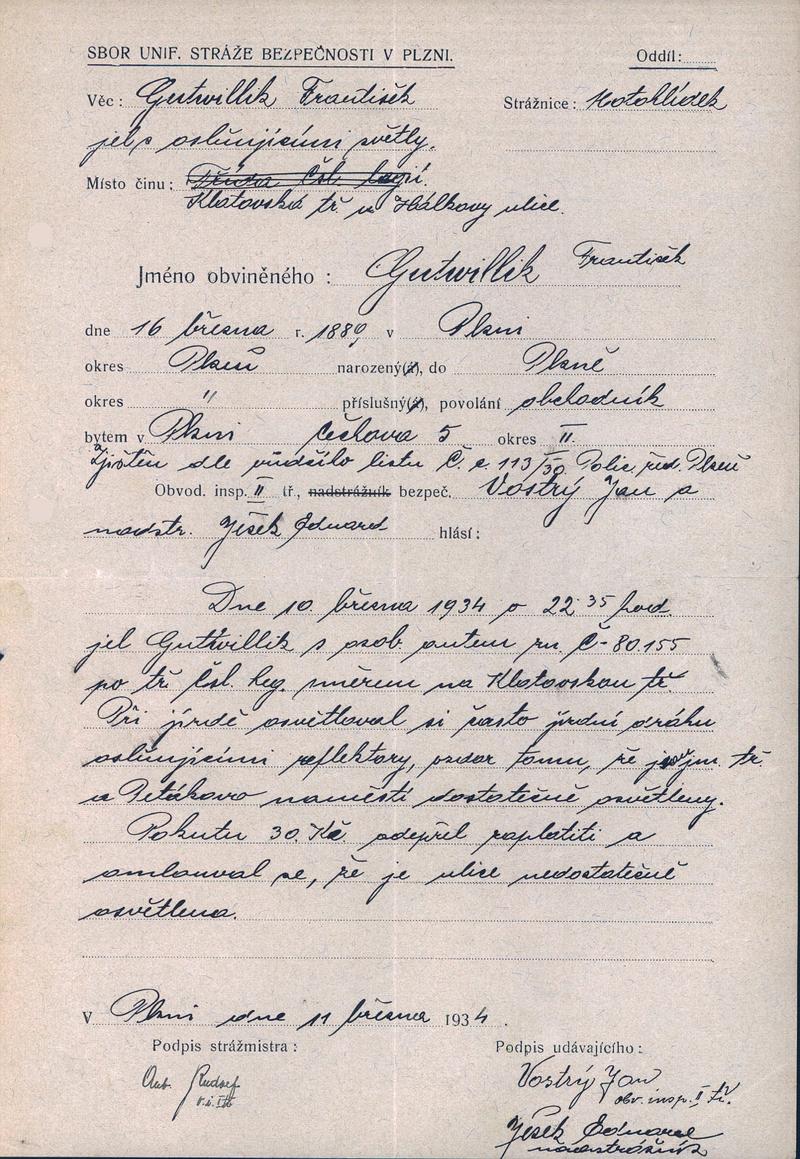 SBOR UNIF. STRÁŽE BEZPEČNOSTI V PLZNI. Oddíl:
Věc: Gutwillik František Strážnice: Motohlídek
jel s oslňujícími světly.
Místo činu: Třída Čsl. legií.
Klatovská tř. u Hálkovy ulice.
Jméno obviněného: Gutwillik František
dne 16 března r. 1889, v Plzni
okres Plzeň narozený(á), do Plzně
okres " příslušný(á), povolání obchodník
bytem v Plzni Čechova 5 okres II.
Zjištěn dle vůdčího listu Č. e. 113/30 Polic. řed. Plzeň
Obvod. insp. II tř., nadstrážník bezpeč. Vostrý Jan a
nadstr. Ješek Eduard hlásí:
Dne 10. března 1934 o 22 35 hod.
jel Guthvillik s osob. autem zn. Č-80.155
po tř. Čsl. leg. směrem na Klatovskou tř.
Při jízdě osvětloval si často jízdní dráhu
oslňujícími reflektory, vzdor tomu, že jsou jm. tř.
a Petákovo naměstí dostatečně osvětleny.
Pokutu 30. Kč. odepřel zaplatiti a
omlouval se, že je ulice nedostatečně
osvětlena.
V Plzni dne 11 března 1934.
Podpis strážmistra: Podpis udávajícího:
Ant. Vostrý Jan
obv. insp. II. tř.
Ješek Eduard
nadstrážník